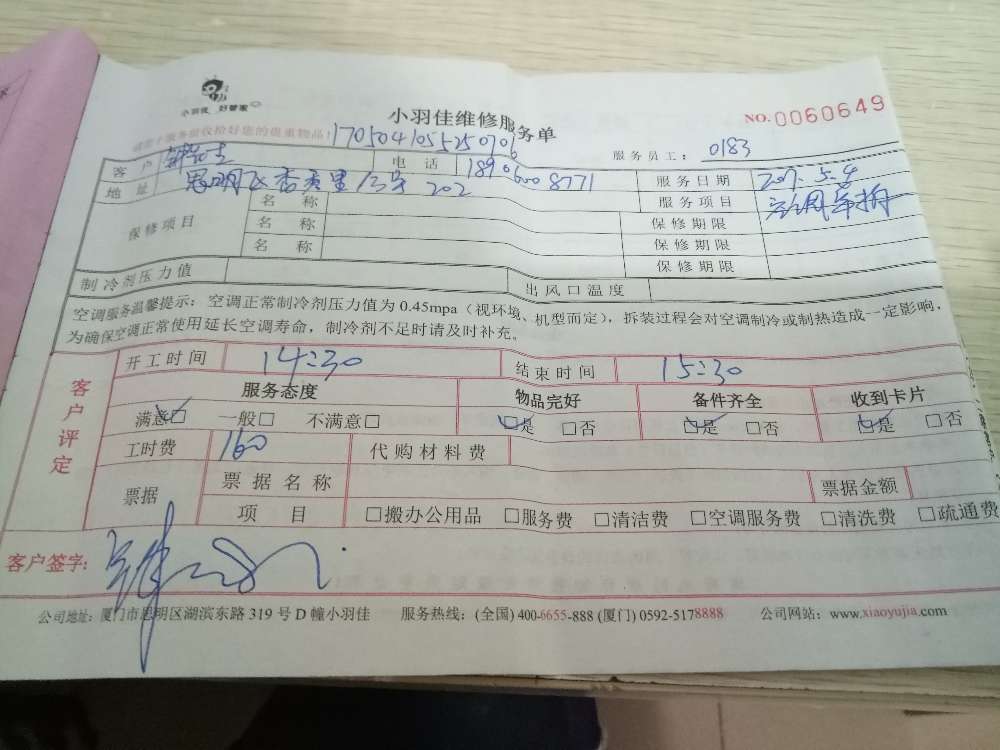 小羽佳 好管家
小羽佳维修服务单
NO.0060649
请您于服务前收拾好您的贵重物品!
1705041055250706
服务员工: 0183
客户
电话 18906008771
服务日期 2017.5.4
地址 思明区杏秀里13号 202
服务项目 空调单拆
保修项目
名称
保修期限
名称
保修期限
名称
保修期限
制冷剂压力值
出风口温度
空调服务温馨提示:空调正常制冷剂压力值为0.45mpa(视环境、机型而定),拆装过程会对空调制冷或制热造成一定影响,
为确保空调正常使用延长空调寿命,制冷剂不足时请及时补充。
客户评定
开工时间 14:30
结束时间 15:30
服务态度 物品完好 备件齐全 收到卡片
满意□ 一般□ 不满意□ □是 □否 □是 □否 □是 □否
工时费 160 代购材料费
票据 票据名称 票据金额
项目 □搬办公用品 □服务费 □清洁费 □空调服务费 □清洗费 □疏通费
客户签字:
公司地址:厦门市思明区湖滨东路 319 号 D 幢小羽佳 服务热线:(全国) 400-6655-888 (厦门) 0592-5178888 公司网站:www.xiaoyujia.com